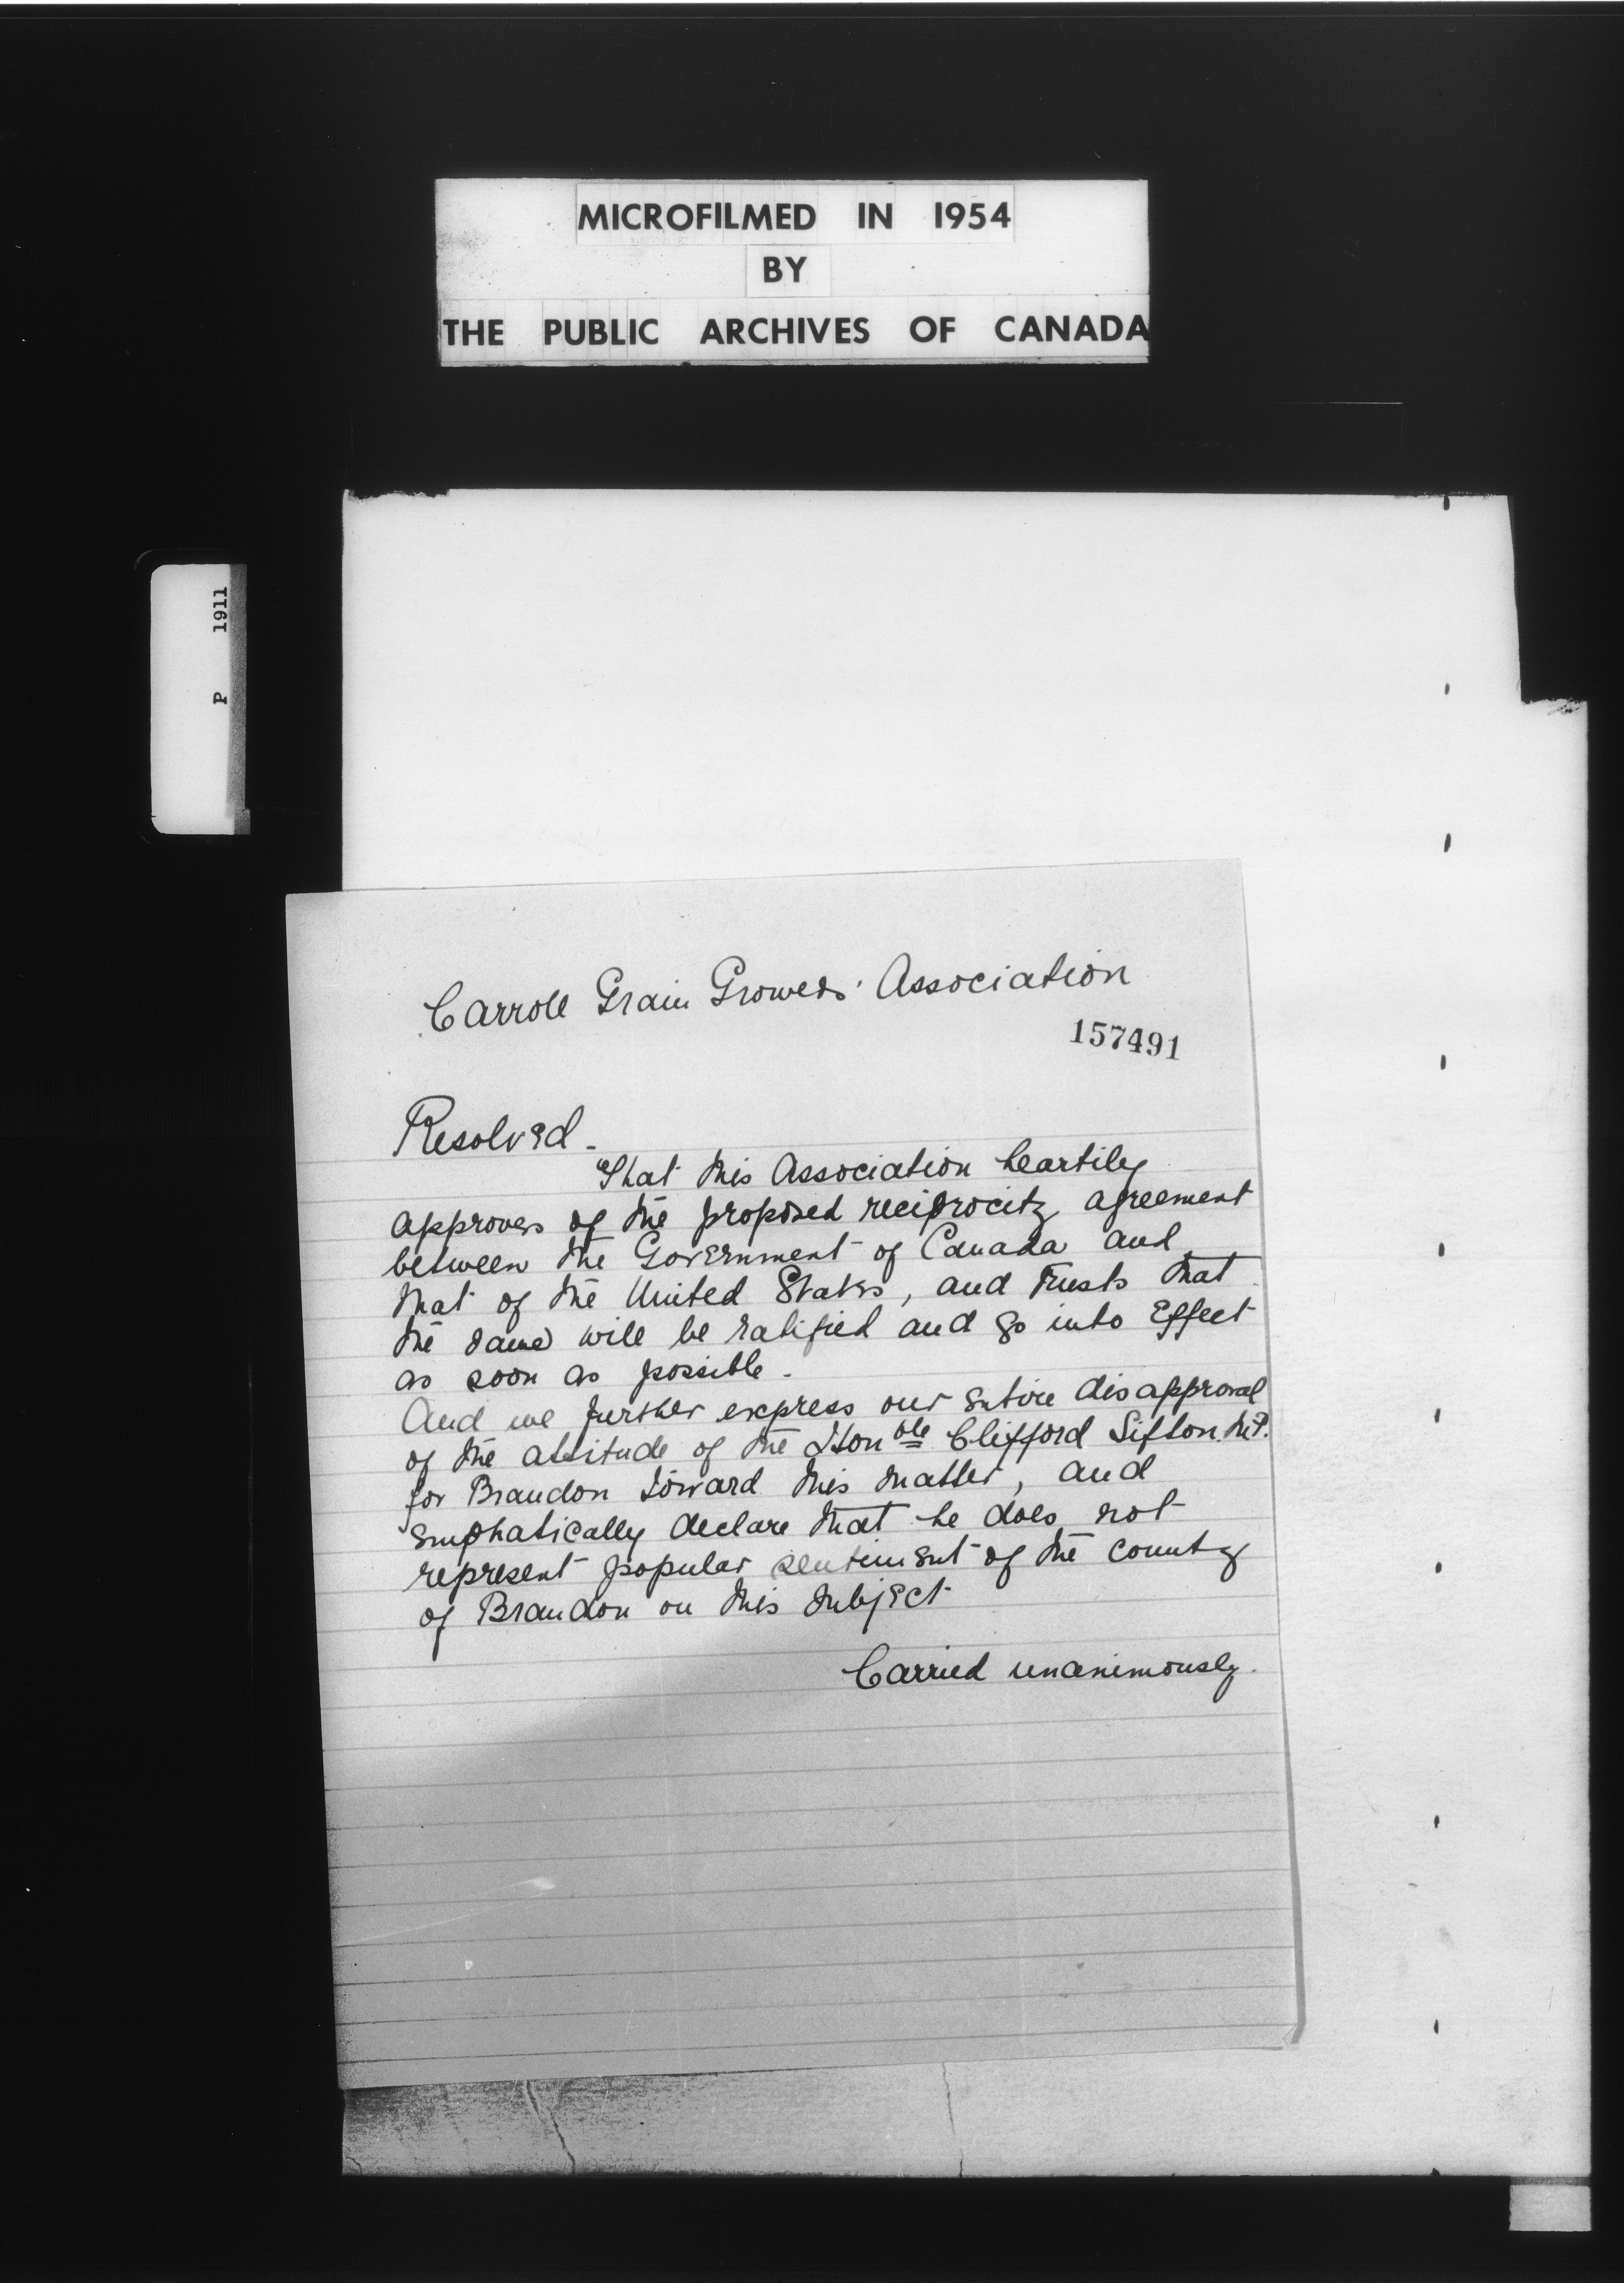 MICROFILMED IN 1954
BY
THE PUBLIC ARCHIVES OF CANADA
P 1911
Carroll Grain Growers' Association
157491
Resolved -
"That this Association heartily
approves of the proposed reciprocity agreement
between the Government of Canada and
that of the United States, and trusts that
the same will be ratified and go into effect
as soon as possible -
And we further express our entire disapproval
of the attitude of the Honble Clifford Sifton M.P.
for Brandon toward this matter, and
emphatically declare that he does not
represent popular sentiment of the county
of Brandon on this subject
Carried unanimously.